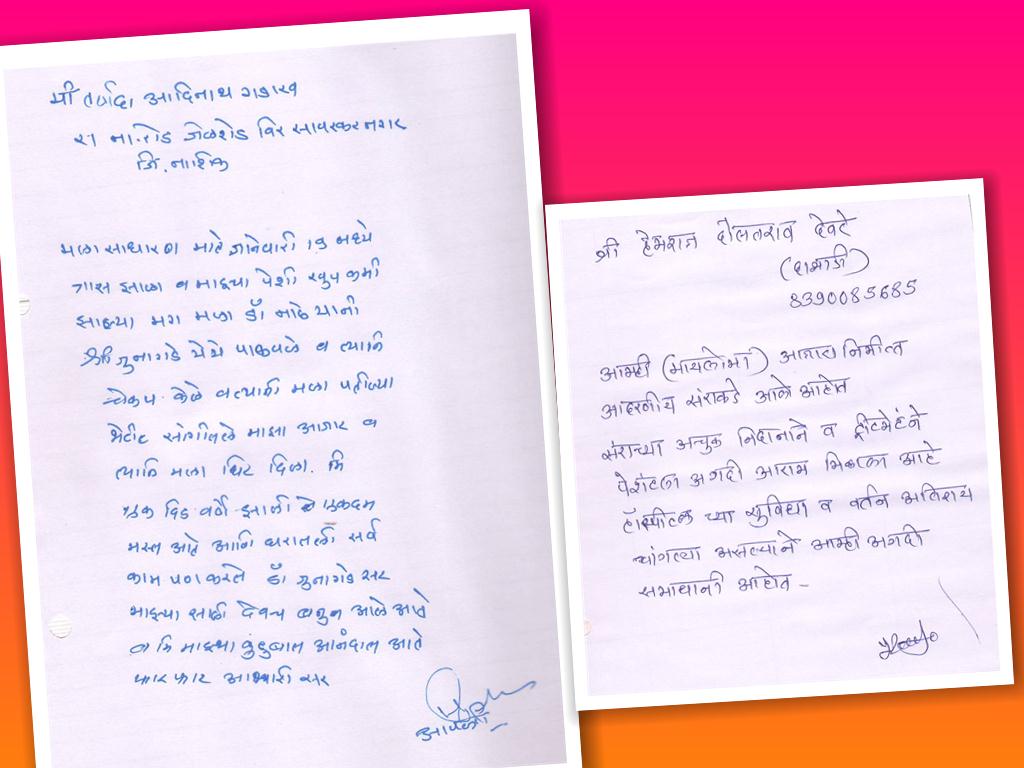 मी वर्षा आदिनाथ गडाख
रा ना.रोड जेलरोड विर सावरकर नगर
जि. नाशिक
मला साधारण माहे जानेवारी 19 मध्ये
त्रास झाला व माझ्या पेशी खुप कमी
झाल्या मग मला डॉ यांनी
जुनागडे येथे पाठवले व त्यानि
चेकप केले व त्यांनी मला पहील्या
भेटीट सांगीतले माझा आजार व
त्यांनि मला धिर दिला. मि
एक दिड वर्षे झाली एकदम
मस्त आहे आणि घरातली सर्व
काम पण करते डॉ जुनागडे सर
माझ्या साठी देवच बनुन आले आहे
व मि माझ्या कुंटुबात आनंदात आहे
फार फार आभारी सर
आपली
श्री हेमराज दौलतराव देवरे
(दाभाडी)
8390085685
आम्ही (मायलोमा) आजारा निमीत्त
आदरनीय सरांकडे आलो आहोत
सरांच्या अचुक निदानाने व ट्रीटमेंटने
पेशंटला अगदी आराम मिळाला आहे
हॉस्पीटल च्या सुविधा व वर्तन अतिशय
चांगल्या असल्याने आम्ही अगदी
समाधानी आहोत –